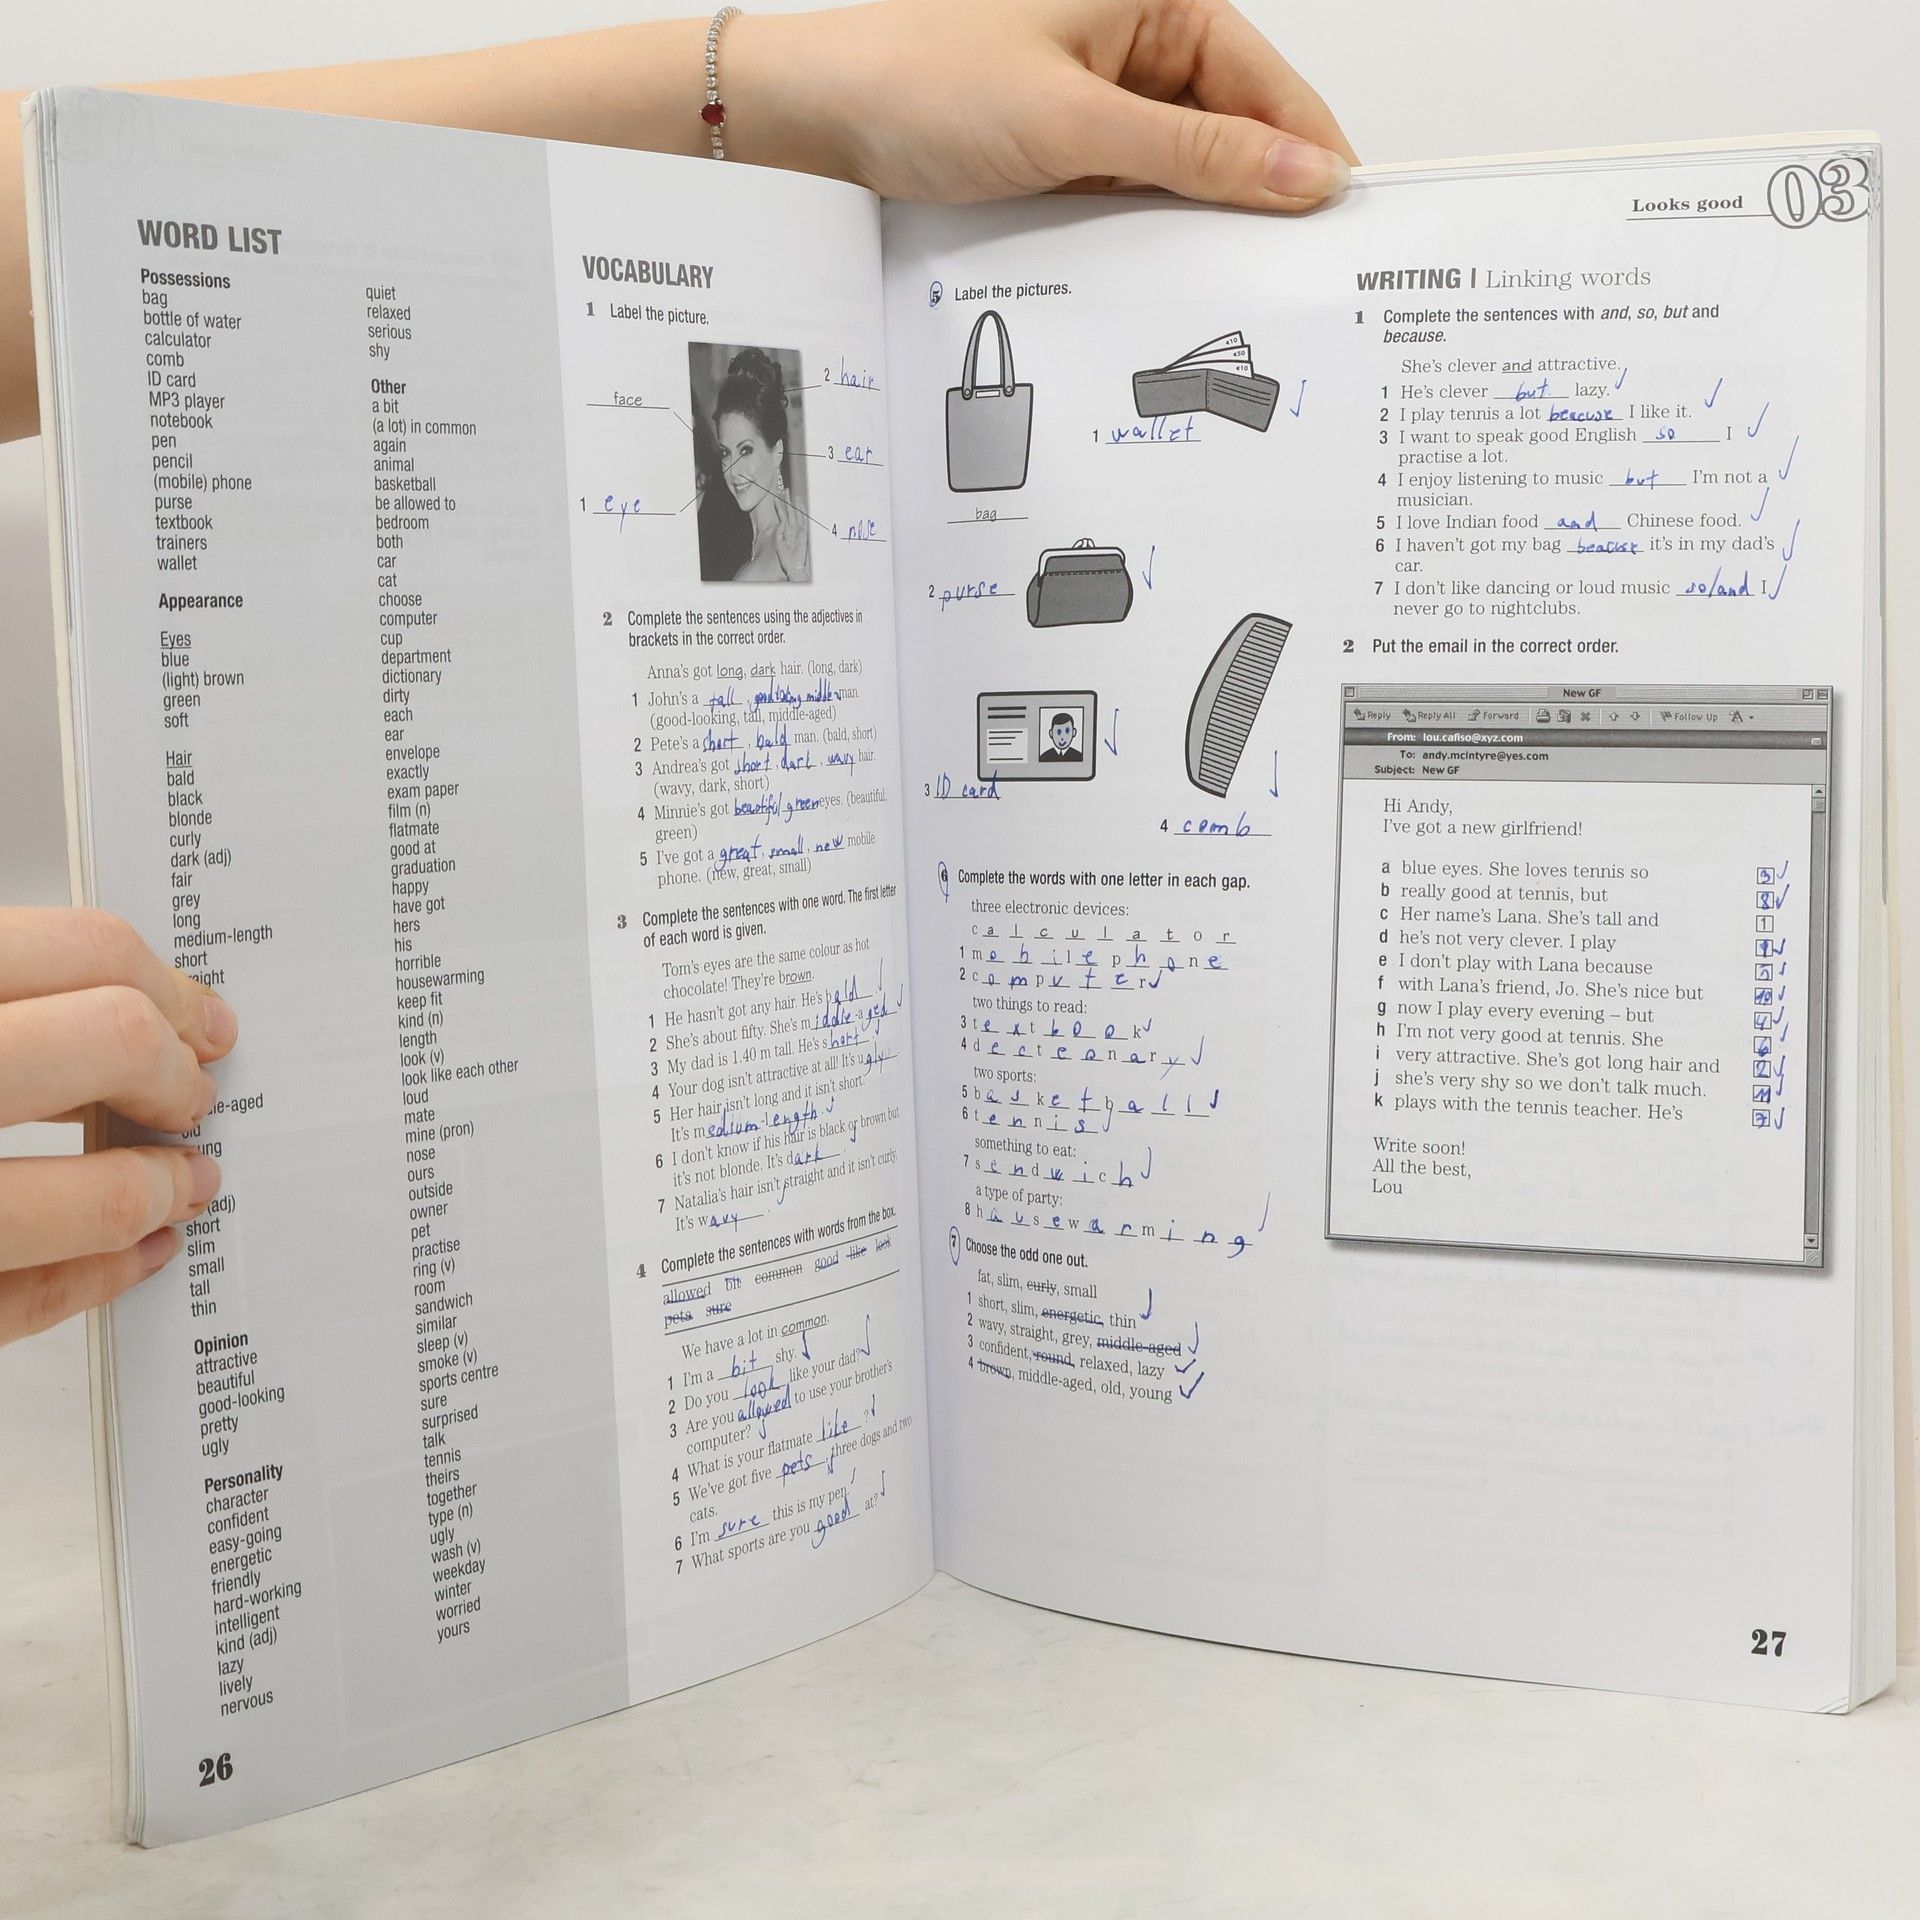 WORD LIST
Possessions
bag
bottle of water
calculator
comb
ID card
MP3 player
notebook
pen
pencil
(mobile) phone
purse
textbook
trainers
wallet
Appearance
Eyes
blue
(light) brown
green
soft
Hair
bald
black
blonde
curly
dark (adj)
fair
grey
long
medium-length
short
(adj)
short
slim
small
tall
thin
Opinion
attractive
beautiful
good-looking
pretty
ugly
Personality
character
confident
easy-going
energetic
friendly
hard-working
intelligent
kind (adj)
lazy
lively
nervous
quiet
relaxed
serious
shy
Other
a bit
(a lot) in common
again
animal
basketball
be allowed to
bedroom
both
car
cat
choose
computer
cup
department
dictionary
dirty
each
ear
envelope
exactly
exam paper
film (n)
flatmate
good at
graduation
happy
have got
hers
his
horrible
housewarming
keep fit
kind (n)
length
look (v)
look like each other
loud
mate
mine (pron)
nose
ours
outside
owner
pet
practise
ring (v)
room
sandwich
similar
sleep (v)
smoke (v)
sports centre
sure
surprised
talk
tennis
theirs
together
type (n)
ugly
wash (v)
weekday
winter
worried
yours
26
VOCABULARY
1 Label the picture.
face
2 hair
3 ear
1 eye
4 nose
2 Complete the sentences using the adjectives in
brackets in the correct order.
Anna's got long, dark hair. (long, dark)
1 John's a tall, good-looking, middle man.
(good-looking, tall, middle-aged)
2 Pete's a short, bald man. (bald, short)
3 Andrea's got short, dark, wavy hair.
(wavy, dark, short)
4 Minnie's got beautiful green eyes. (beautiful,
green)
5 I've got a great, small, new mobile
phone. (new, great, small)
3 Complete the sentences with one word. The first letter
of each word is given.
Tom's eyes are the same colour as hot
chocolate! They're brown.
1 He hasn't got any hair. He's bald
2 She's about fifty. She's middle-aged
3 My dad is 1.40 m tall. He's short
4 Your dog isn't attractive at all! It's ugly.
5 Her hair isn't long and it isn't short.
It's medium-length.
6 I don't know if his hair is black or brown but
it's not blonde. It's dark
7 Natalia's hair isn't straight and it isn't curly.
It's wavy
4 Complete the sentences with words from the box.
allowed bit common good like look
pets sure
We have a lot in common.
1 I'm a bit shy.
2 Do you look like your dad?
3 Are you allowed to use your brother's
computer?
4 What is your flatmate like ?
5 We've got five pets, three dogs and two
cats.
6 I'm sure this is my pen.
7 What sports are you good at?
Looks good 03
5 Label the pictures.
€10
€50
€10
bag
1 wallet
2 purse
3 ID card
4 comb
6 Complete the words with one letter in each gap.
three electronic devices:
c a l c u l a t o r
1 m o b i l e p h o n e
2 c o m p u t e r
two things to read:
3 t e x t b o o k
4 d e c t e o n a r y
two sports:
5 b a s k e t b a l l
6 t e n n i s
something to eat:
7 s e n d w i c h
a type of party:
8 h a u s e w a r m i n g
7 Choose the odd one out.
fat, slim, curly, small
1 short, slim, energetic, thin
2 wavy, straight, grey, middle-aged
3 confident, round, relaxed, lazy
4 brown, middle-aged, old, young
WRITING | Linking words
1 Complete the sentences with and, so, but and
because.
She's clever and attractive.
1 He's clever but lazy.
2 I play tennis a lot beacuse I like it.
3 I want to speak good English so I
practise a lot.
4 I enjoy listening to music but I'm not a
musician.
5 I love Indian food and Chinese food.
6 I haven't got my bag beacuse it's in my dad's
car.
7 I don't like dancing or loud music so/and I
never go to nightclubs.
2 Put the email in the correct order.
New GF
Reply Reply All Forward Follow Up A
From: lou.cafiso@xyz.com
To: andy.mcintyre@yes.com
Subject: New GF
Hi Andy,
I've got a new girlfriend!
a blue eyes. She loves tennis so
b really good at tennis, but 8
c Her name's Lana. She's tall and 1
d he's not very clever. I play
e I don't play with Lana because
f with Lana's friend, Jo. She's nice but 10
g now I play every evening – but 4
h I'm not very good at tennis. She 6
i very attractive. She's got long hair and 2
j she's very shy so we don't talk much. 11
k plays with the tennis teacher. He's
Write soon!
All the best,
Lou
27